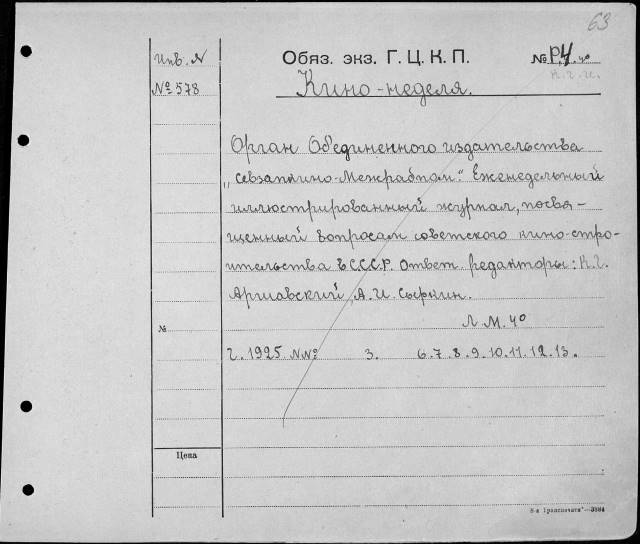 63
Инв. N
№ 578
Обяз. экз. Г. Ц. К. П.
№ Р4 4°
Кино-неделя.
Орган Об'единенного издательства
„Севзапкино-Межрабпом". Еженедельный
иллюстрированный журнал, посвя-
щенный вопросам советского кино-стро-
ительства в С.С.С.Р. Ответ. редакторы: К. Г.
Аршавский, А. И. Сыркин.
Л. М. 4°
№
г. 1925 NN° 3. 6. 7. 8. 9. 10. 11. 12. 13.
Цена
3884